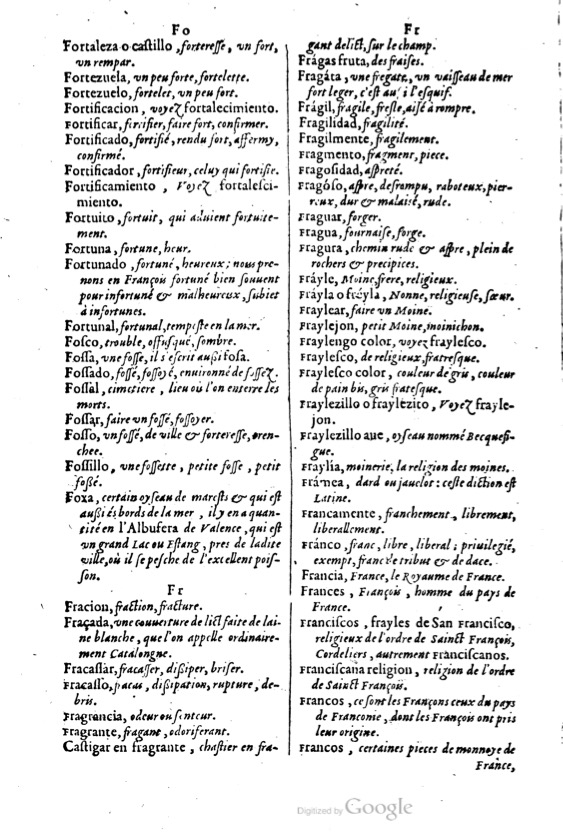 Fo
Fortaleza o castillo, forteresse, vn fort,
vn rempar.
Fortezuela, vn peu forte, fortelette.
Fortezuelo, fortelet, vn peu fort.
Fortificacion, voyez fortalecimiento.
Fortificar, fortifier, faire fort, confirmer.
Fortificado, fortifié, rendu fort, affermy,
confirmé.
Fortificador, fortifieur, celuy qui fortifie.
Fortificamiento, Voyez fortalesci-
miento.
Fortuito, fortuit, qui aduient fortuite-
ment.
Fortuna, fortune, heur.
Fortunado, fortuné, heureux; nous pre-
nons en François fortuné bien souuent
pour infortuné & malheureux, subiet
à infortunes.
Fortunal, fortunal, tempeste en la mer.
Fosco, trouble, offusqué, sombre.
Fossa, vne fosse, il s'escrit außi fosa.
Fossado, fossé, fossoyé, enuironné de fossez.
Fossàl, cimetiere, lieu où l'on enterre les
morts.
Fossar, faire vn fossé, fossoyer.
Fosso, vn fossé, de ville & forteresse, tren-
chee.
Fossillo, vne fossette, petite fosse, petit
foßé.
Foxa, certain oyseau de marests & qui est
außi és bords de la mer, il y en a quan-
tité en l'Albufera de Valence, qui est
vn grand Lac ou Estang, pres de ladite
ville, où il se pesche de l'excellent pois-
son.
Fr
Fracion, fraction, fracture.
Fraçada, vne couuerture de lict faite de lai-
ne blanche, que l'on appelle ordinaire-
ment Catalongne.
Fracassar, fracasser, dißiper, briser.
Fracasso, fracas, dißipation, rupture, de-
bris.
Fragrancia, odeur ou senteur.
Fragrante, fragant, odoriferant.
Castigar en fragrante, chastier en fra-
Fr
gant delict, sur le champ.
Frágas fruta, des fraises.
Fragáta, vne fregate, vn vaisseau de mer
fort leger, c'est außi l'esquif.
Frágil, fragile, fresle, aisé à rompre.
Fragilidad, fragilité.
Fragilmente, fragilement.
Fragmento, fragment, piece.
Fragosidad, aspreté.
Fragóso, aspre, desrompu, raboteux, pier-
reux, dur & malaisé, rude.
Fraguar, forger.
Fragua, fournaise, forge.
Fragura, chemin rude & aspre, plein de
rochers & precipices.
Fráyle, Moine, frere, religieux.
Fráyla o fréyla, Nonne, religieuse, sœur.
Fraylear, faire vn Moine.
Fraylejon, petit Moine, moinichon.
Fraylengo color, voyez fraylesco.
Fraylesco, de religieux, fratresque.
Fraylesco color, couleur de gris, couleur
de pain bis, gris fratesque.
Fraylezillo o fraylezico, Voyez frayle-
jon.
Fraylezillo aue, oyseau nommé Becquefi-
gue.
Fraylía, moinerie, la religion des moines.
Frámea, dard ou jauelot: ceste diction est
Latine.
Francamente, franchement, librement,
liberallement.
Fránco, franc, libre, liberal; priuilegié,
exempt, franc de tribut & de dace.
Francia, France, le Royaume de France.
Frances, François, homme du pays de
France.
Franciscos, frayles de San Francisco,
religieux de l'ordre de Sainct François,
Cordeliers, autrement Franciscanos.
Franciscana religion, religion de l'ordre
de Sainct François.
Francos, ce sont les Françons ceux du pays
de Franconie, dont les François ont pris
leur origine.
Francos, certaines pieces de monnoye de
France,
Digitized by Google